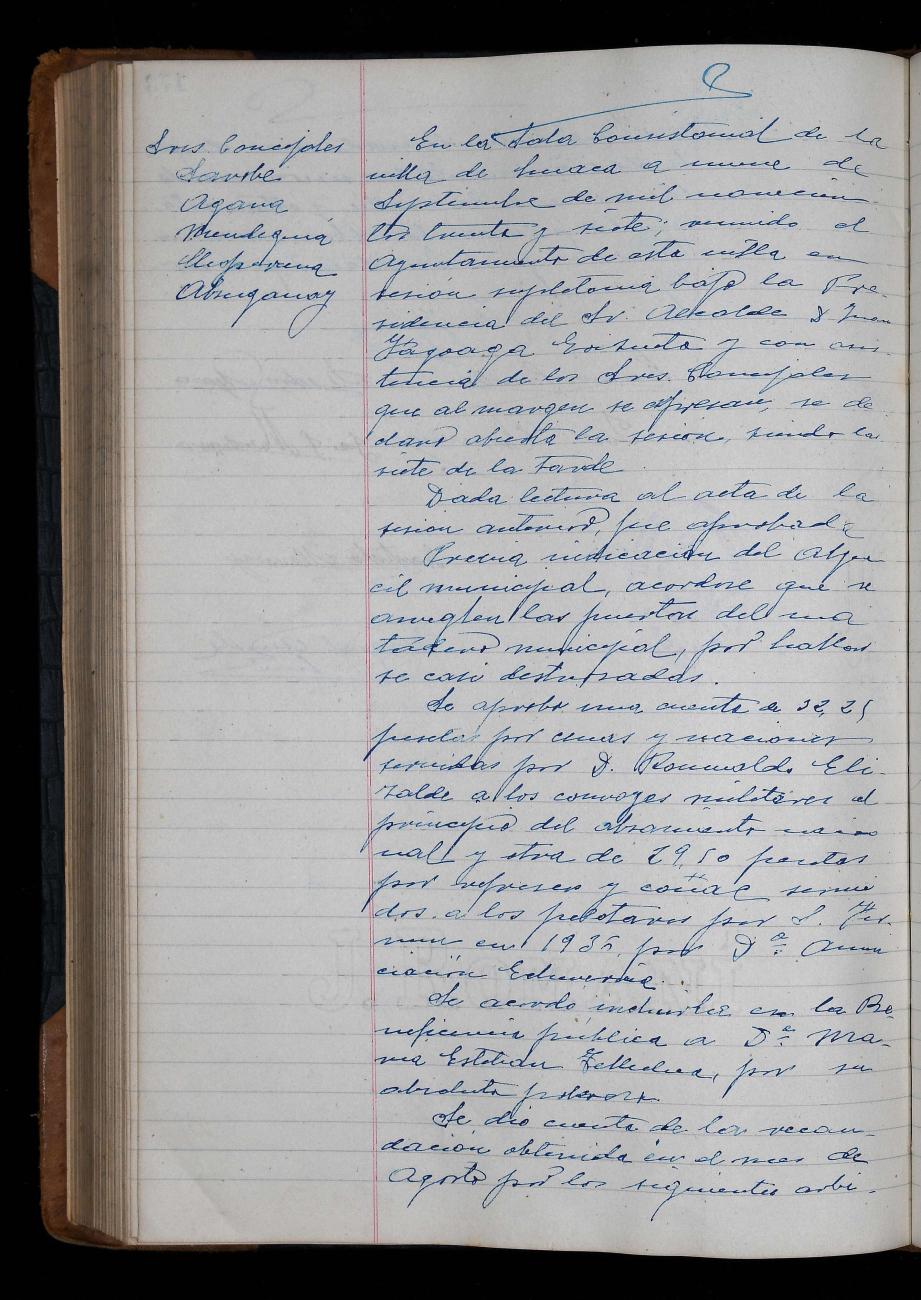 Sres. Concejales
Sarobe
Agara
Mendeguia
Abugauay
En la Sala Consistorial de la
villa de a nueve de
Septiembre de mil novecien
tos treinta y siete; reunido el
Ayuntamiento de esta villa en
sesión supletoria bajo la Pre-
sidencia del Sr. Alcalde D. Juan
y con asis-
tencia de los Sres. Concejales
que al margen se expresan, se de
claró abierta la sesión, siendo las
siete de la tarde
Dada lectura al acta de la
sesion anterior, fue aprobada
Previa indicación del Algua
cil municipal, acordose que se
arreglen las puertas del ma
tadero municipal, por hallar
se casi destrozadas.
Se aprobó una cuenta de 32,25
pesetas por cenas y raciones
servidas por D. Romualdo Eli-
zalde a los convoyes militares al
principio del alzamiento nacio
nal y otra de 29,50 pesetas
por refrescos y coñac servi
dos a los pelotaris por S. Fer-
min en 1936 por Dª. Anun
ciación Echeverria.
Se acordó incluirle en la Be-
neficencia pública a Dª. Ma-
ria Esteban Tellechea, por su
absoluta pobreza
Se dio cuenta de la recau-
dación obtenida en el mes de
Agosto por los siguientes arbi-